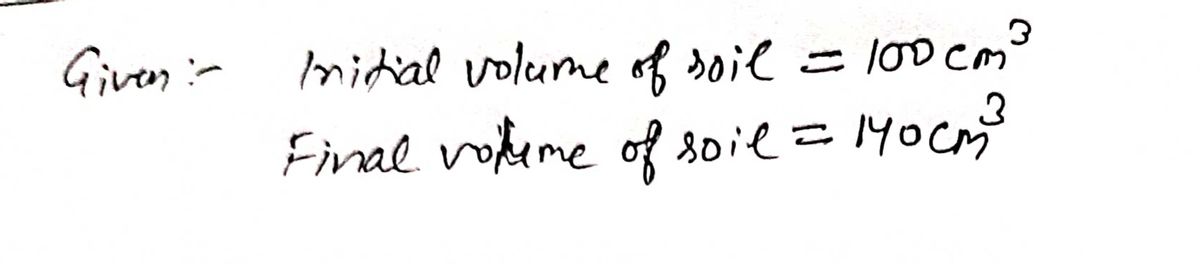 Given :- Initial volume of soil = 100 cm³
Final volume of soil = 140 cm³